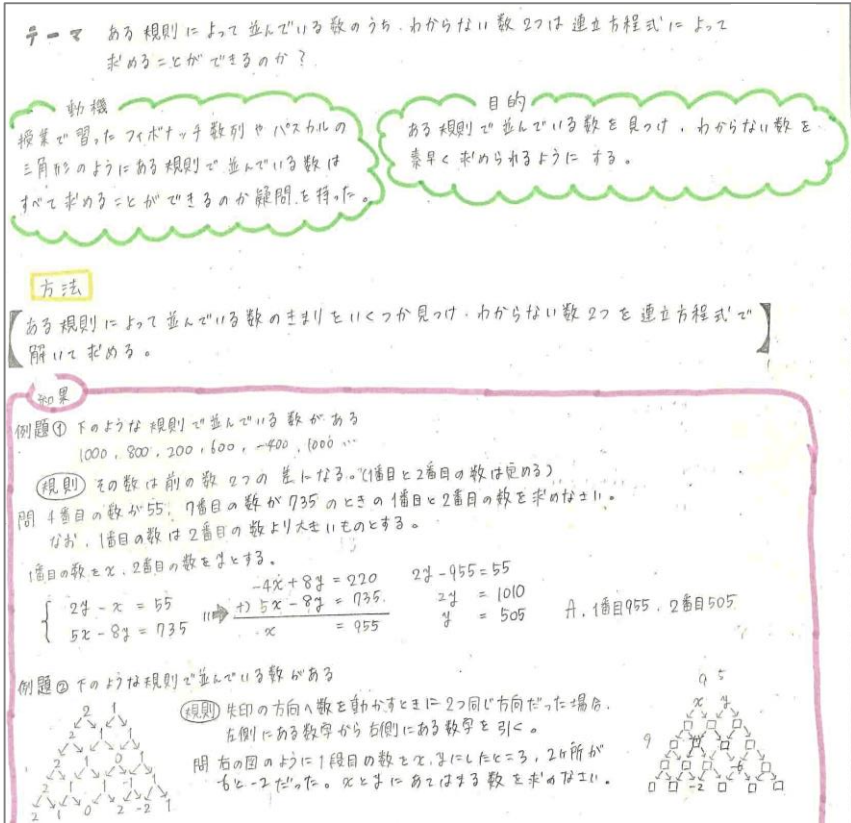 テーマ ある規則によって並んでいる数のうち、わからない数2つは連立方程式によって
求めることができるのか？
動機
授業で習ったフィボナッチ数列やパスカルの
三角形のようにある規則で並んでいる数は
すべて求めることができるのか疑問を持った。
目的
ある規則で並んでいる数を見つけ、わからない数を
素早く求められるようにする。
方法
ある規則によって並んでいる数のきまりをいくつか見つけ、わからない数2つを連立方程式で
解いて求める。
結果
例題① 下のような規則で並んでいる数がある
1000, 800, 200, 600, -400, 1000 …
規則 その数は前の数2つの差になる。(1番目と2番目の数は定める)
問 4番目の数が55、7番目の数が735のときの1番目と2番目の数を求めなさい。
なお、1番目の数は2番目の数より大きいものとする。
1番目の数をx、2番目の数をyとする。
2y - x = 55
5x - 8y = 735
-4x + 8y = 220
+) 5x - 8y = 735
x = 955
2y - 955 = 55
2y = 1010
y = 505
A. 1番目955、2番目505
例題② 下のような規則で並んでいる数がある
規則 矢印の方向へ数を動かすときに2つ同じ方向だった場合、
左側にある数字から右側にある数字を引く。
問 右の図のように1段目の数をx、yにしたところ、2ヶ所が
6と-2だった。xとyにあてはまる数を求めなさい。
2 1
2 1 1
2 1 0 1
2 1 -1 1
2 1 0 2 -2 1
9 5
x y
9
6
-2